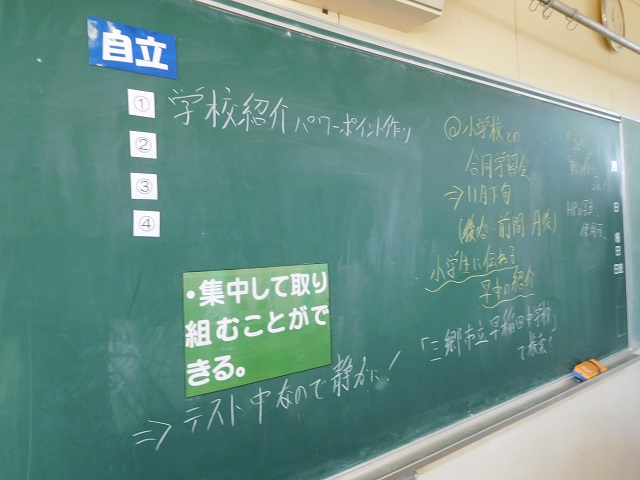 自立
①
学校紹介 パワーポイント作り
②
③
④
・集中して取り
組むことがで
きる。
⇒テスト中なので静かに!
◎小学校との
合同学習会
⇒11月下旬
小学生に伝わる
早中の紹介
「三郷市立早稲田中学校」
で検索!
HPの写真
使用可。
月
日
曜
日